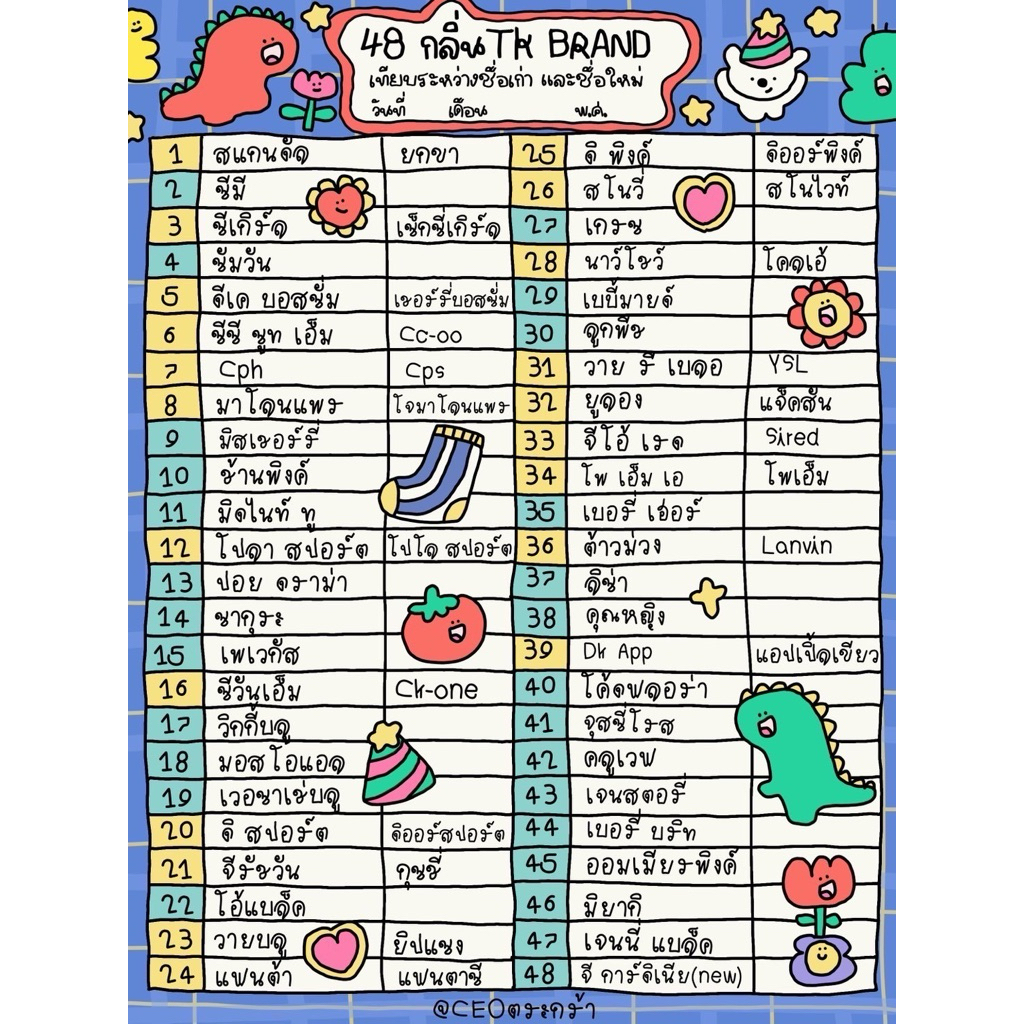 48 กลิ่นTK BRAND
เทียบระหว่างชื่อเก่า และชื่อใหม่
วันที่ เดือน พ.ศ.
1 สแกนดัล ยกขา
2 ซีมี
3 ซีเกิร์ล เซ็กซี่เกิร์ล
4 ซัมวัน
5 ดีเค บอสซั่ม เชอร์รี่บอสซั่ม
6 ซีซี ซูท เอ็ม Cc-oo
7 Cph Cps
8 มาโลนแพร โจมาโลนแพร
9 มิสเชอร์รี่
10 ช้านพิงค์
11 มิดไนท์ ทู
12 โปลา สปอร์ต โปโล สปอร์ต
13 ปอย ดราม่า
14 ซากุระ
15 เพเวกัส
16 ซีวันเอ็ม Ck-one
17 วิคกี้บลู
18 มอสโอแอล
19 เวอซาเช่บลู
20 ดิ สปอร์ต ดิออร์สปอร์ต
21 จีรัชวัน กุชชี่
22 โอ้แบล็ค
23 วายบลู ยิปแซง
24 แฟนต้า แฟนตาซี
25 ดิ พิงค์ ดิออร์พิงค์
26 สโนวี่ สโนไวท์
27 เกรซ
28 นาว์โชว์ โคลเอ้
29 เบบี้มายด์
30 ลูกพีช
31 วาย รี เบลอ YSL
32 ยูลอง แจ็คสัน
33 จีโอ้ เรด Sired
34 โพ เอ็ม เอ โพเอ็ม
35 เบอรี่ เฮอร์
36 ต้าวม่วง Lanvin
37 ลิซ่า
38 คุณหญิง
39 Dk App แอปเปิ้ลเขียว
40 โค้ดฟลอร่า
41 จุสซี่โรส
42 คลูเวฟ
43 เจนสตอรี่
44 เบอรี่ บริท
45 ออมเมียรพิงค์
46 มิยาคิ
47 เจนนี่ แบล็ค
48 จี การ์ดิเนีย(new)
@CEOตระกร้า